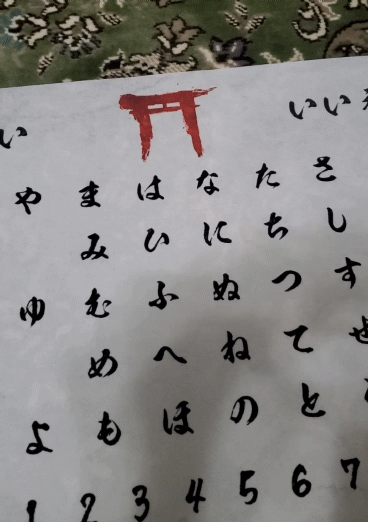 い いい
や ま は な た さ
み ひ に ち し
ゆ む ふ ぬ つ す
め へ ね て せ
よ も ほ の と
1 2 3 4 5 6 7